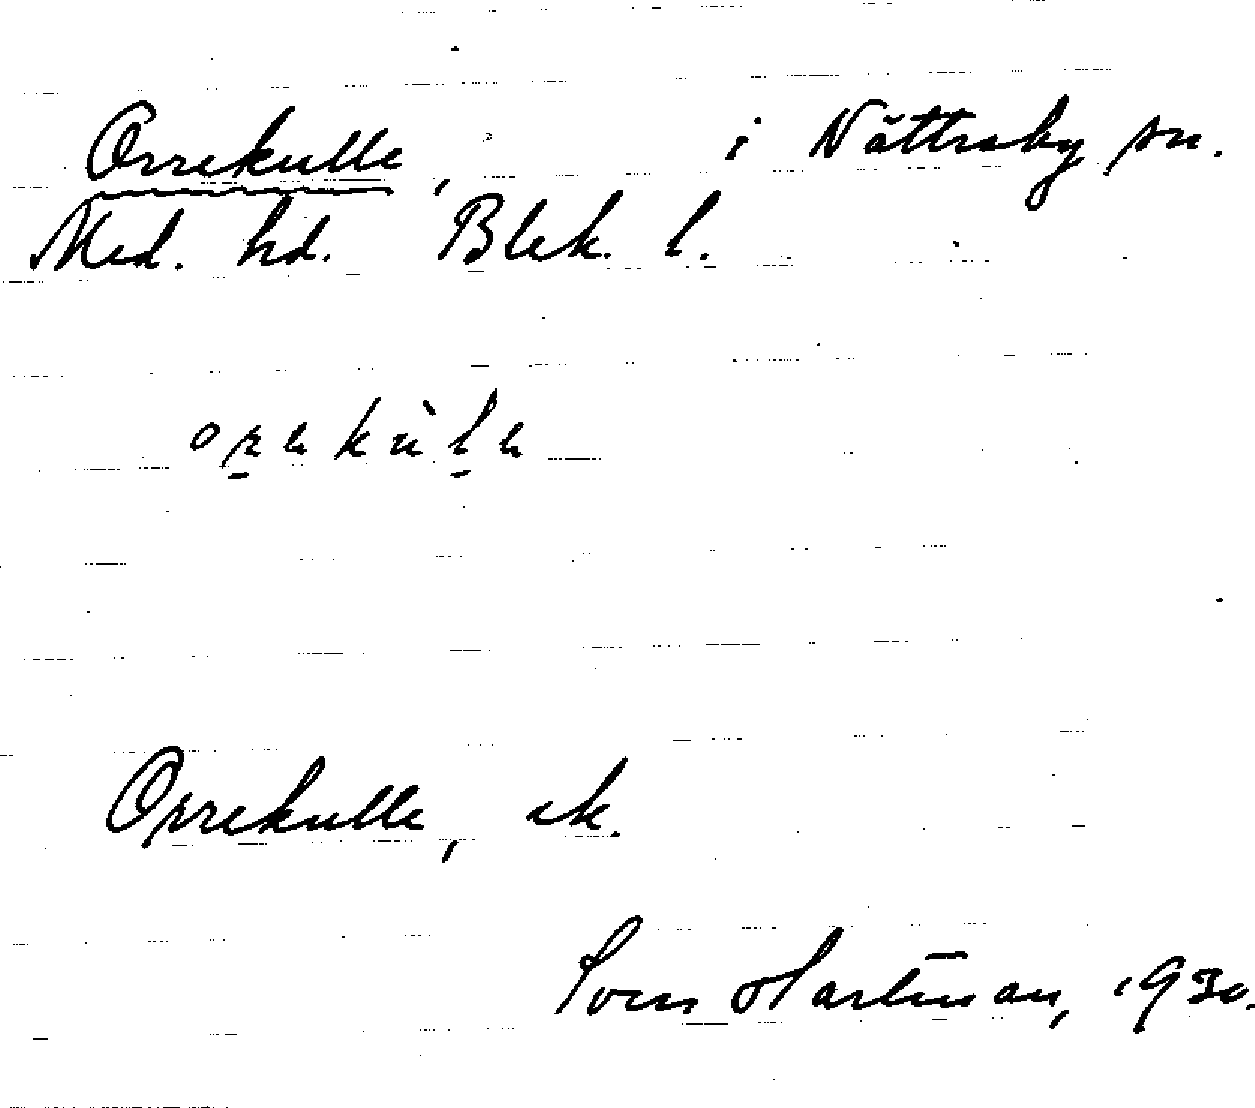 Orrekulle, i Nättraby sn.
Med. hd. Blek. l.
Orrekulle, ek.
Sven Hartman, 1930.